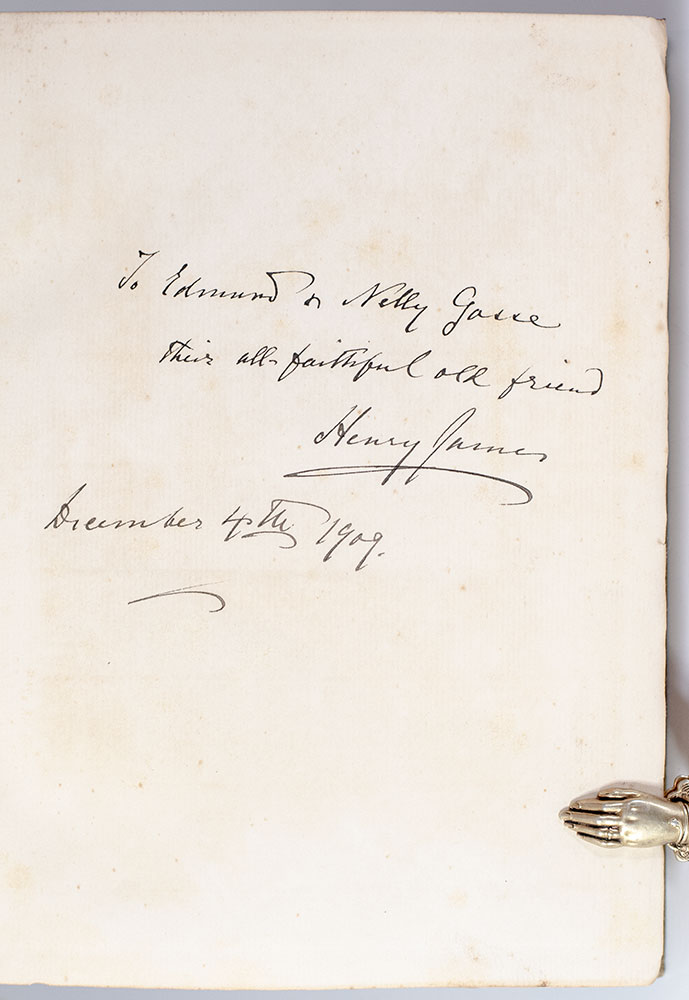 To Edmund & Nelly Gosse
their all-faithful old friend
Henry James
December 4th 1909.